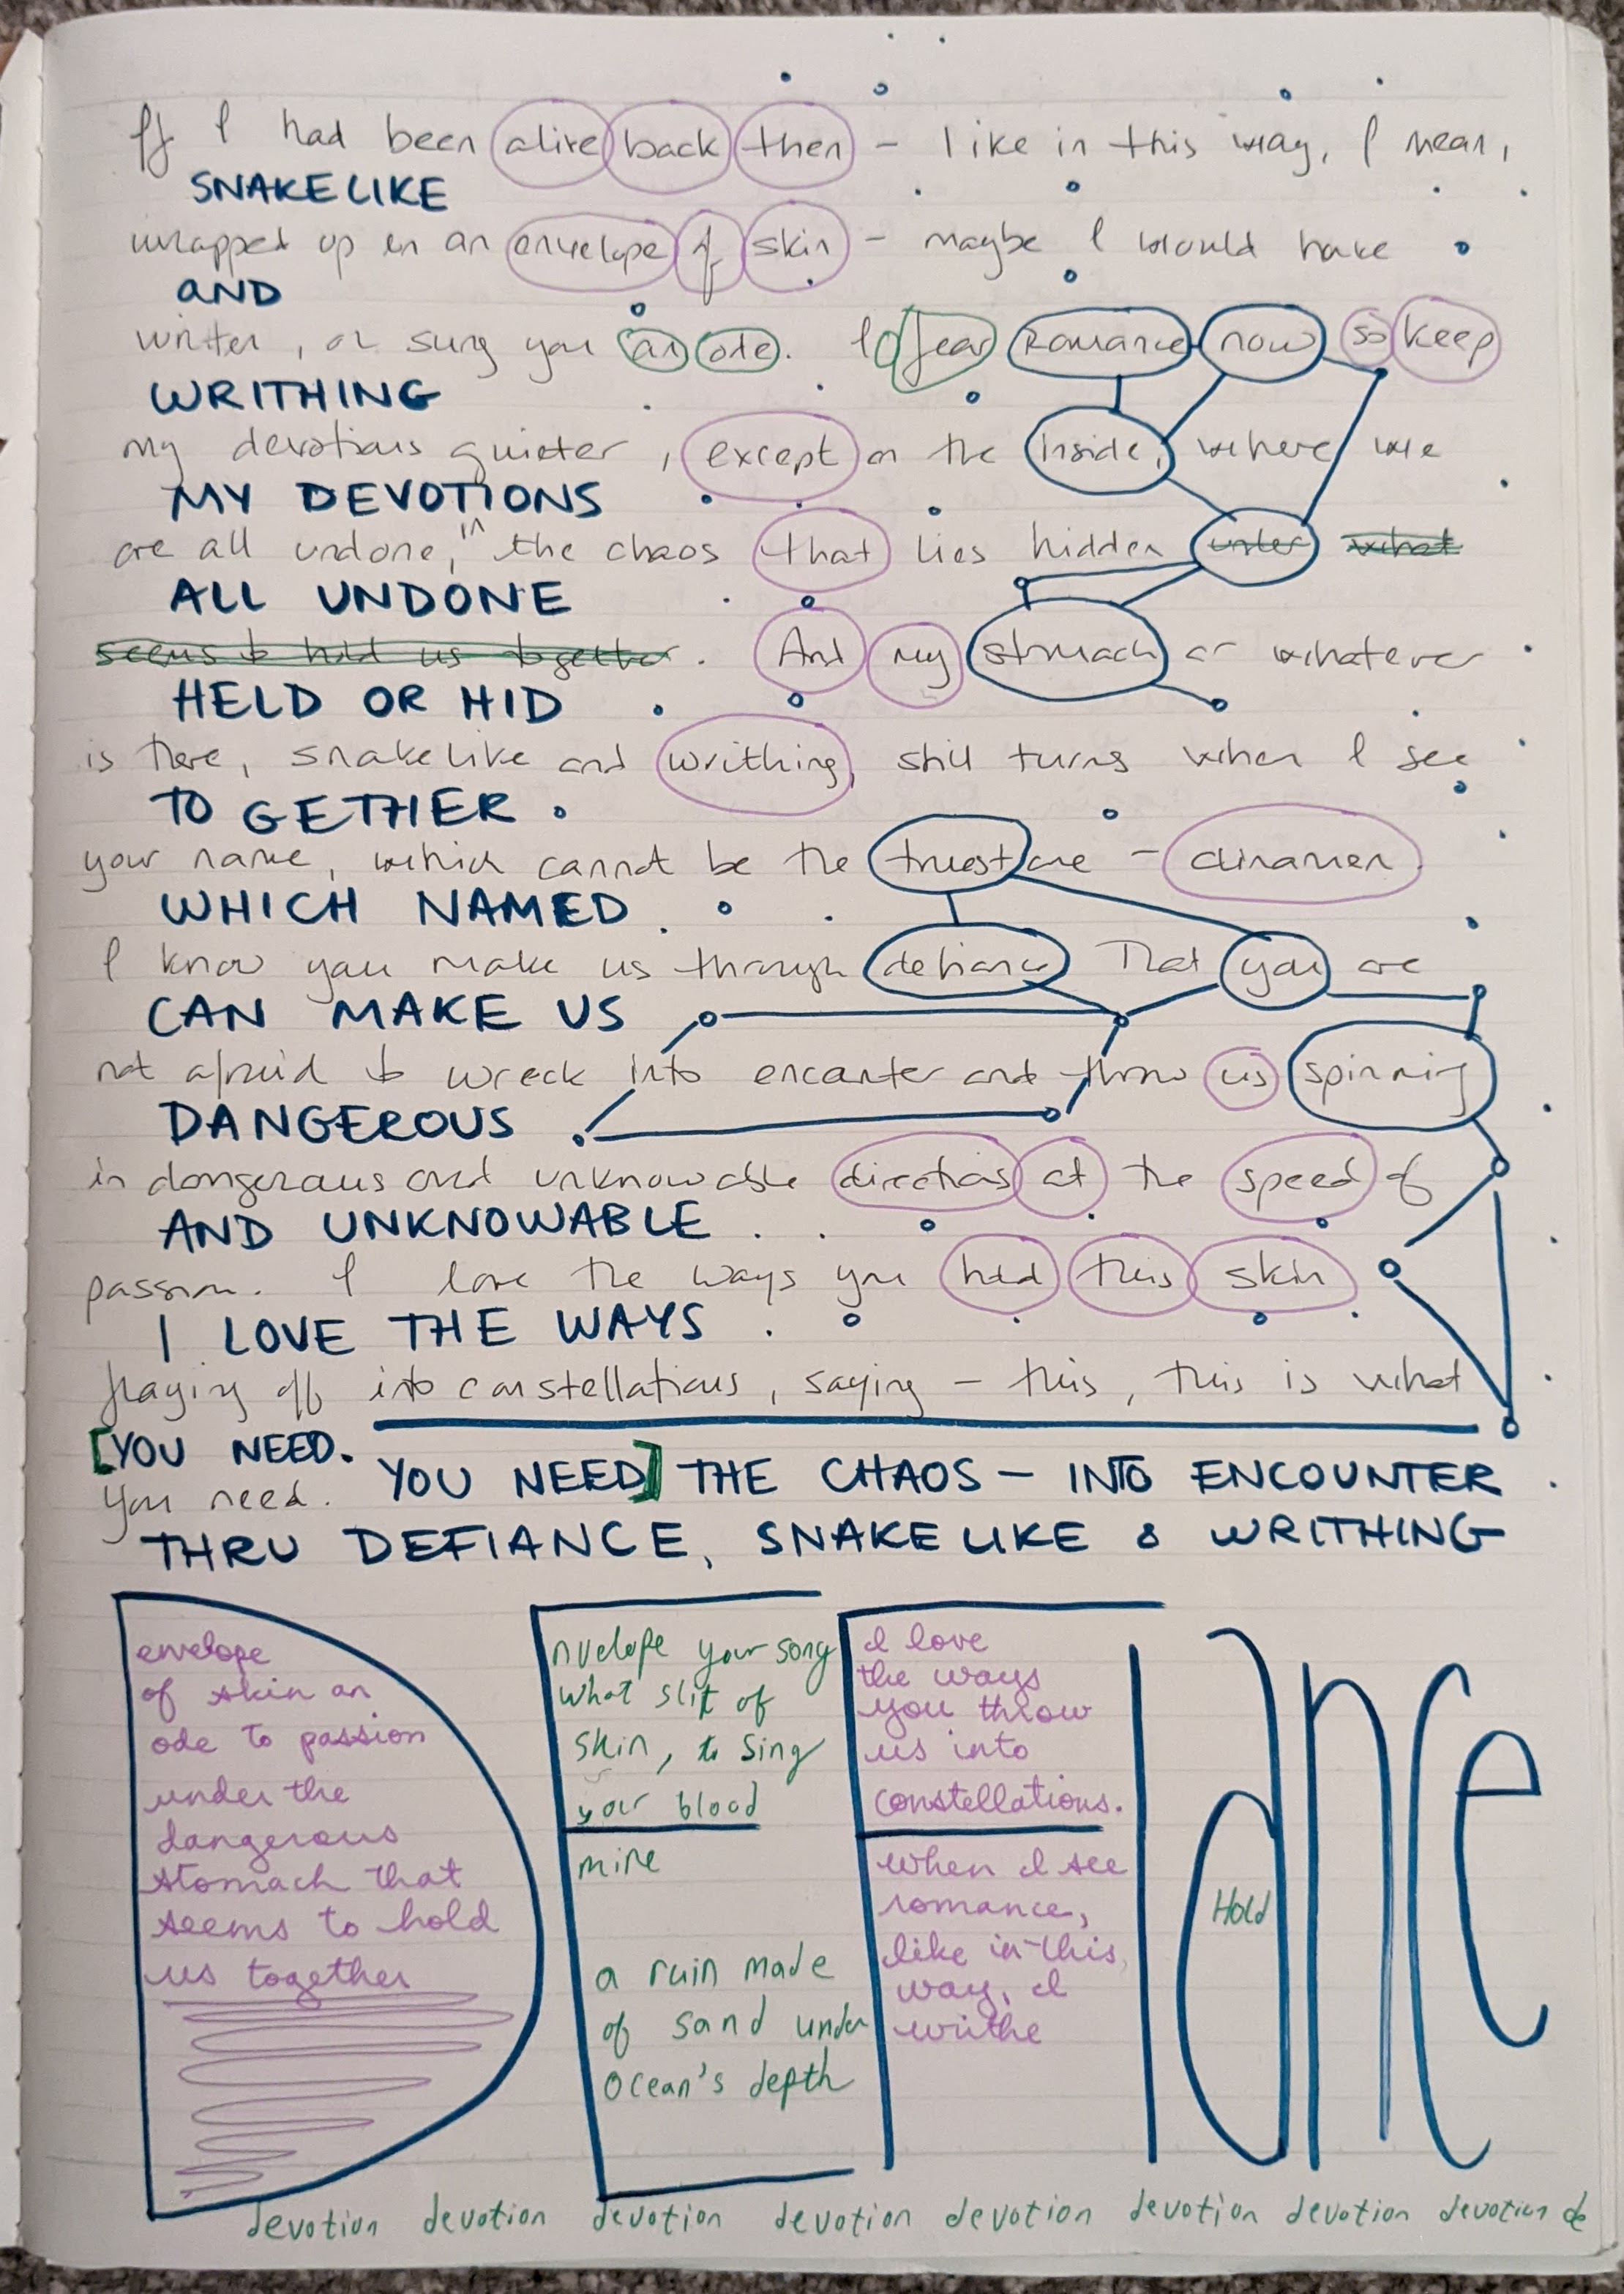 If I had been alive back then – like in this way, I mean,
SNAKELIKE
wrapped up in an envelope of skin – maybe I would have
AND
written, or sung you an ode. I fear Romance now so keep
WRITHING
my devotions quieter, except on the inside, where we
MY DEVOTIONS
are all undone, in the chaos that lies hidden under what
ALL UNDONE
seems to hold us together. And my stomach or whatever
HELD OR HID
is there, snakelike and writhing, still turns when I see
TO GETHER.
your name, which cannot be the truest one – clinamen.
WHICH NAMED.
I know you make us through defiance That you are
CAN MAKE US
not afraid to wreck into encounter and throw us spinning
DANGEROUS
in dangerous and unknowable directions at the speed of
AND UNKNOWABLE
passion. I love the ways you hold this skin
I LOVE THE WAYS
fraying off into constellations, saying – this, this is what
[YOU NEED.
you need.
YOU NEED] THE CHAOS – INTO ENCOUNTER
THRU DEFIANCE, SNAKELIKE & WRITHING
envelope
of skin an
ode to passion
under the
dangerous
stomach that
seems to hold
us together
nvelope your song
what slit of
skin, to sing
your blood
mine
a ruin made
of sand under
ocean's depth
I love
the ways
you throw
us into
constellations.
when I see
romance,
like in this,
way, I
writhe
Hold
devotion devotion devotion devotion devotion devotion devotion devotion de